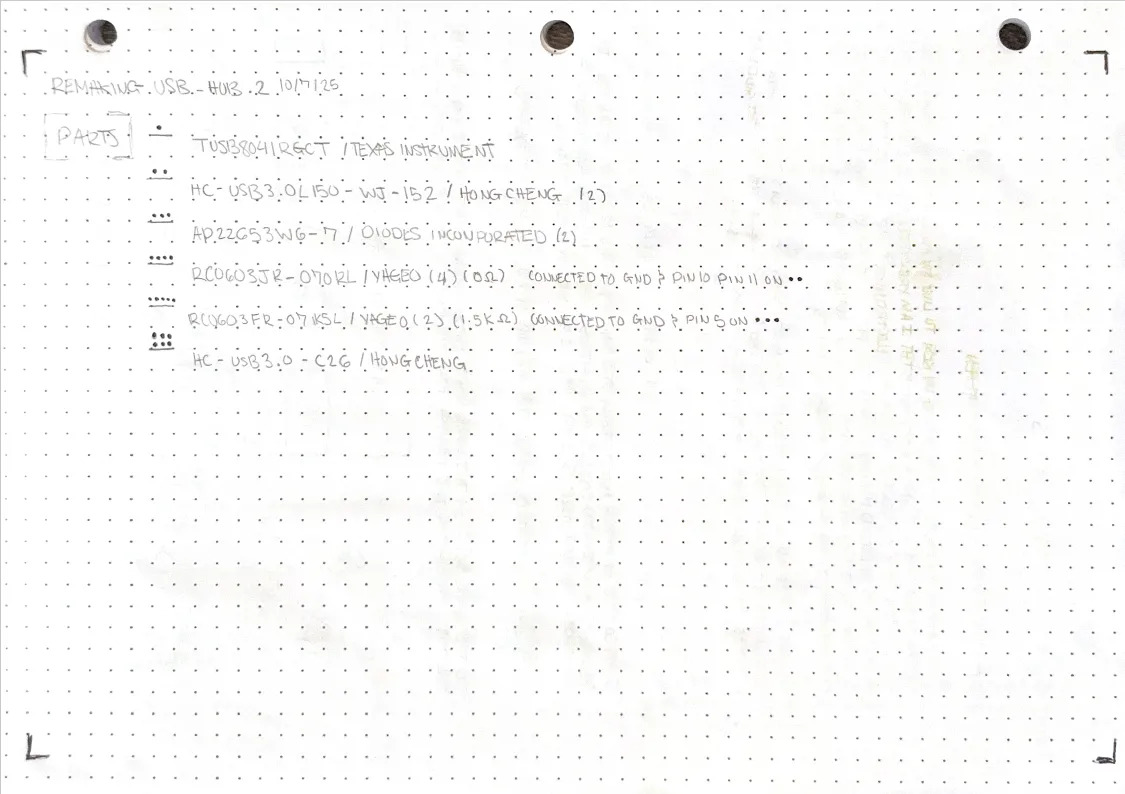 REMAKING USB-HUB.2 10/7/25
PARTS
TUSB8041RGCT / TEXAS INSTRUMENT
HC-USB3.0L150-WJ-152 / HONGCHENG (2)
AP22653W6-7 / DIODES INCONPORATED (2)
RC0603JR-070RL / YAGEO (4) (0Ω) CONNECTED TO GND & PIN 10 PIN 11 ON ••
RC0603FR-071K5L / YAGEO (2) (1.5K Ω) CONNECTED TO GND & PIN 5 ON •••
HC-USB3.0-C26 / HONGCHENG